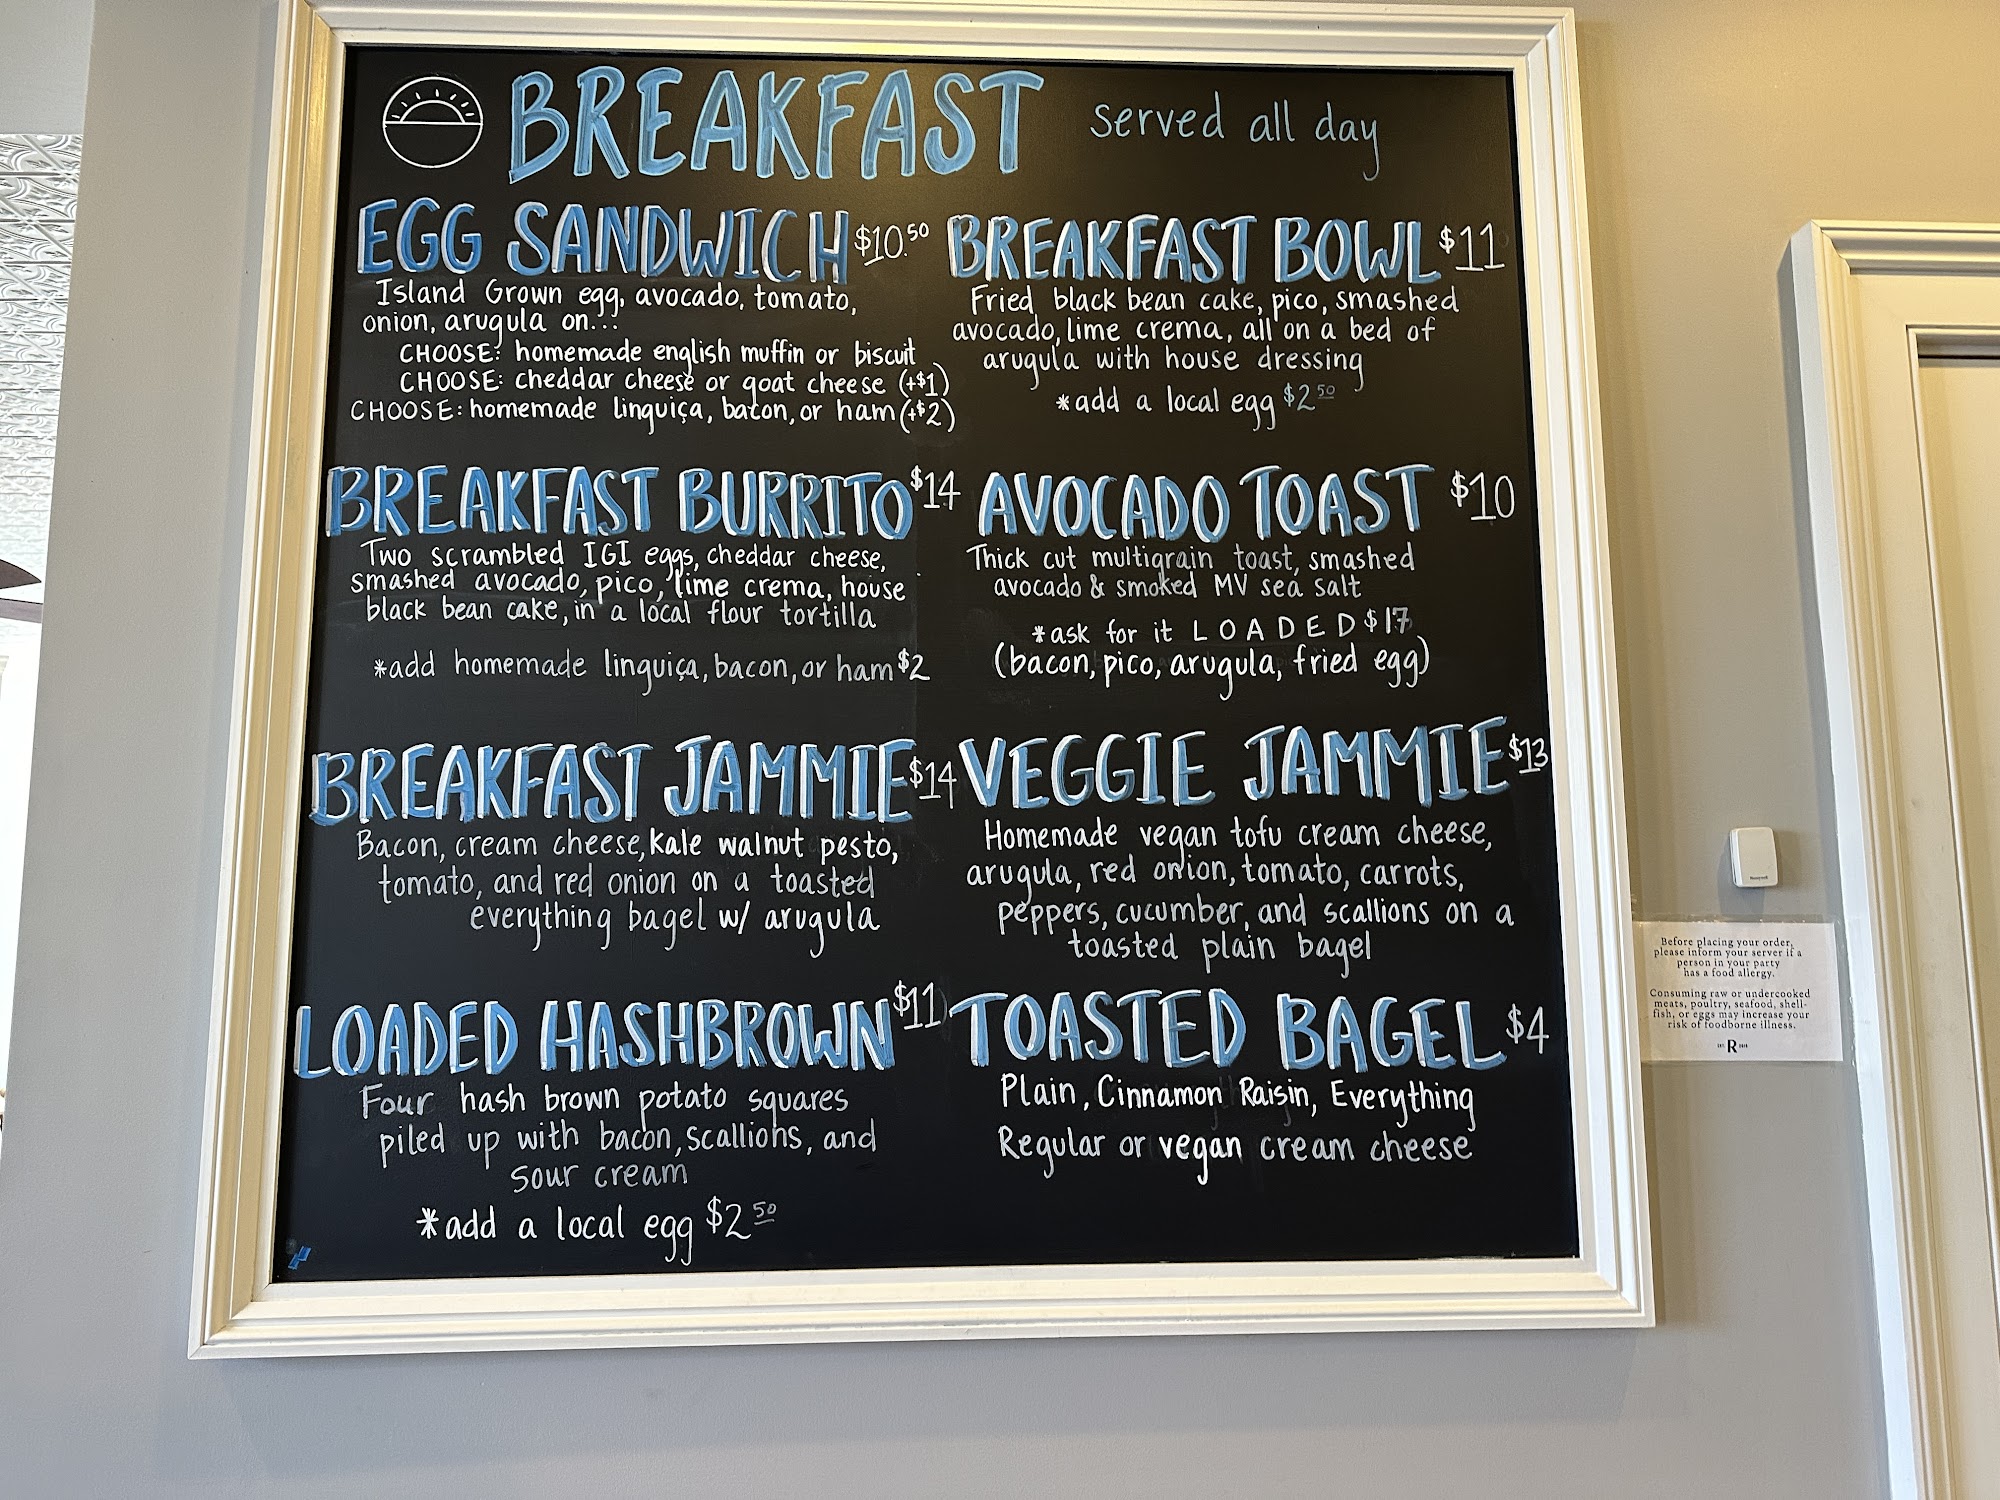 BREAKFAST served all day
EGG SANDWICH $10.50
Island Grown egg, avocado, tomato,
onion, arugula on...
CHOOSE: homemade english muffin or biscuit
CHOOSE: cheddar cheese or goat cheese (+$1)
CHOOSE: homemade linguiça, bacon, or ham (+$2)
BREAKFAST BOWL $11
Fried black bean cake, pico, smashed
avocado, lime crema, all on a bed of
arugula with house dressing
*add a local egg $2.50
BREAKFAST BURRITO $14
Two scrambled IGI eggs, cheddar cheese,
smashed avocado, pico, lime crema, house
black bean cake, in a local flour tortilla
*add homemade linguiça, bacon, or ham $2
AVOCADO TOAST $10
Thick cut multigrain toast, smashed
avocado & smoked MV sea salt
*ask for it LOADED $17
(bacon, pico, arugula, fried egg)
BREAKFAST JAMMIE $14
Bacon, cream cheese, Kale walnut pesto,
tomato, and red onion on a toasted
everything bagel w/ arugula
VEGGIE JAMMIE $13
Homemade vegan tofu cream cheese,
arugula, red onion, tomato, carrots,
peppers, cucumber, and scallions on a
toasted plain bagel
LOADED HASHBROWN $11
Four hash brown potato squares
piled up with bacon, scallions, and
sour cream
*add a local egg $2.50
TOASTED BAGEL $4
Plain, Cinnamon Raisin, Everything
Regular or vegan cream cheese
Honeywell
Before placing your order,
please inform your server if a
person in your party
has a food allergy.
Consuming raw or undercooked
meats, poultry, seafood, shell-
fish, or eggs may increase your
risk of foodborne illness.
R